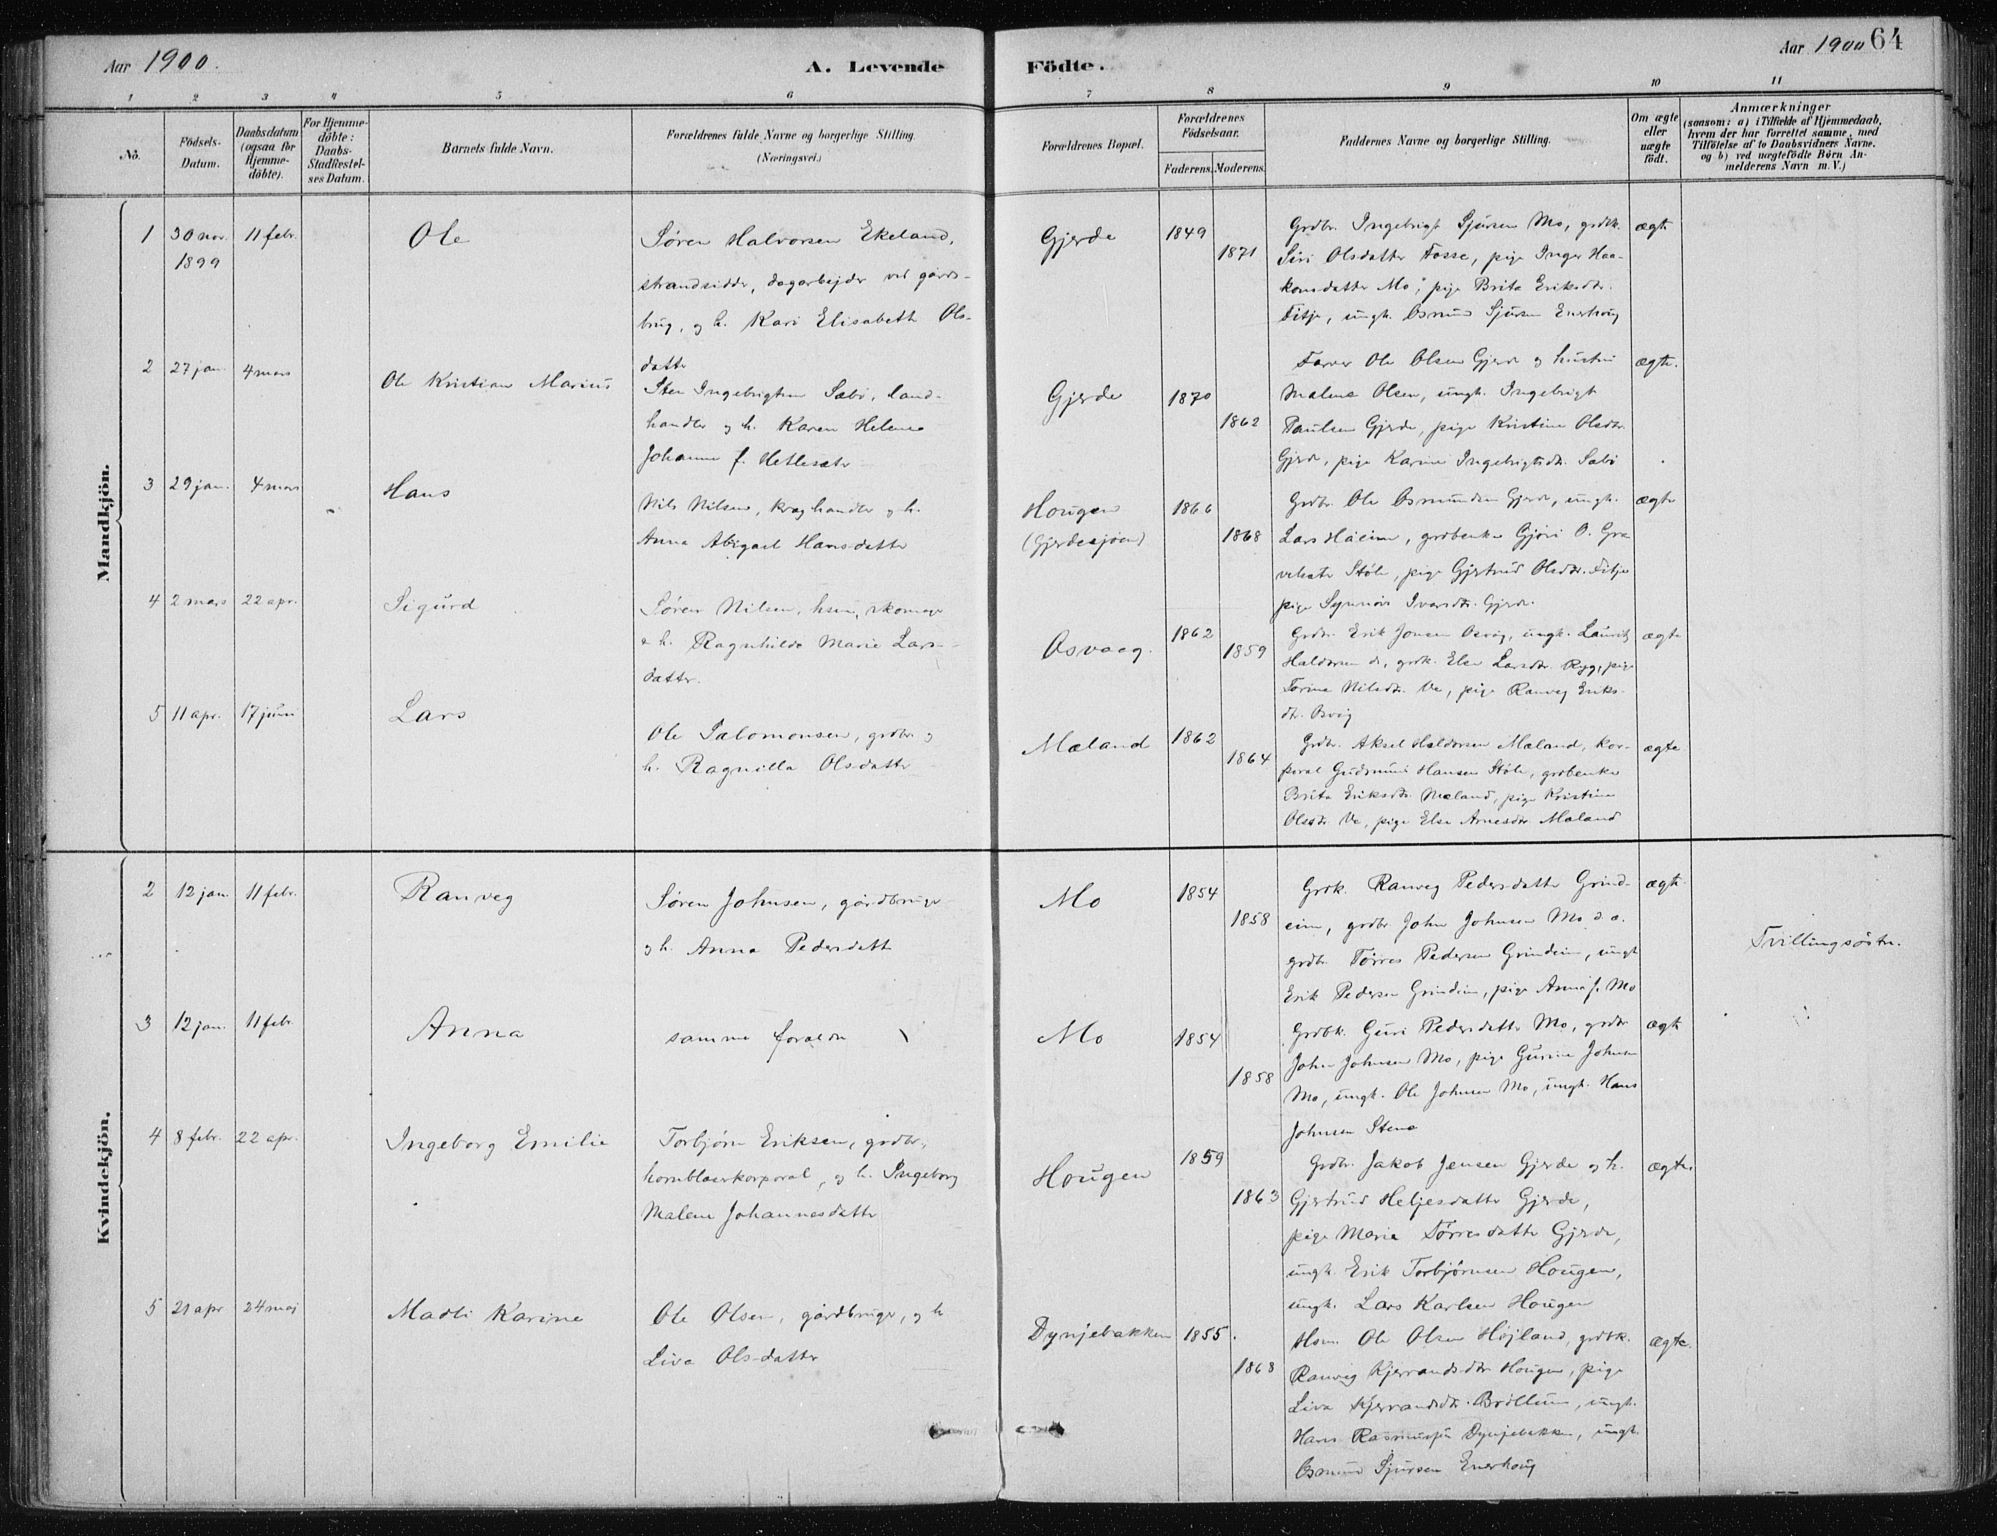 Aar 1900.
A. Levende
Födte.
Aar 1900
64
1 2 3 4 5 6 7 8 9 10 11
No.
Födsels-
Datum.
Daabsdatum
(ogsaa for
Hjemme-
döbte).
For Hjemme-
döbte:
Daabs-
Stadfæstel-
ses Datum.
Barnets fulde Navn.
Forældrenes fulde Navne og borgerlige Stilling.
(Næringsvei.)
Forældrenes Bopæl.
Forældrenes
Födselsaar.
Faderens. Moderens.
Faddernes Navne og borgerlige Stilling.
Om ægte
eller
uægte
födt.
Anmærkninger
(saasom: a) i Tilfælde af Hjemmedaab,
hvem der har forrettet samme, med
Tilföielse af to Daabsvidners Navne.
og b) ved uægtefödte Börn An-
melderens Navn m. V.)
Mandkjön.
1 30 nov. 1899 11 febr.
Ole
Søren Halvorsen Ekeland,
strandsidder, dagarbejder ved gårds-
brug, og h. Kari Elisabeth Ols-
datter
Gjerde 1849 1871
Grdbr. Ingebrigt Sjursen Mo, grdbk.
Siri Olsdatter Fosse, pige Inger Haa-
konsdatter Mo; pige Brita Eriksdtr.
Fitje, ungk. Osmund Sjursen Enerhoug
ægte
2 27 jan. 4 mars
Ole Kristian Marius
Sten Ingebrigtsen Sæbö, land-
handler og h. Karen Helene
Johanne f. Hetlesæter
Gjerde 1870 1862
Farver Ole Olsen Gjerde og hustru
Malene Olsen, ungk. Ingebrigt
Paulsen Gjerde, pige Kristine Olsdtr.
Gjerde, pige Karine Ingebrigtsdtr. Sæbö
ægte.
3 29 jan. 4 mars
Hans
Nils Nilsen, kræghandler og h.
Anna Abigael Hansdatter
Hougen
(Gjerdesjöen)
1866 1868
Grdbr. Ole Osmundsen Gjerde, ungk.
Lars Håeim, grdbenke Gjøri O. Gra
vdsæter Støle, pige Gjertrud Olsdtr. Fitje
pige Synnöve Ivarsdtr. Gjerde.
ægte
4 2 mars 22 apr.
Sigurd
Søren Nilsen, hsm, skomager
& h. Ragnhilde Marie Lars-
datter.
Osvaag. 1862 1859
Grdbr. Erik Jonsen Osvåg, ungk. Lauritz
Haldorsen ds, grdk. Else Larsdtr. Ryg, pige
Torine Nilsdtr. Ve, pige Ranveg Eriks-
dtr. Osvåg
ægte
5 11 apr. 17 juni
Lars
Ole Salomonsen, grdbr. og
h. Ragnilla Olsdatter
Mæland 1862 1864
Grdbr. Aksel Haldorsen Mæland, kor-
poral Gudmund Hansen Støle, grdbenke
Brita Eriksdtr. Mæland, pige Kristine
Olsdtr Ve, pige Else Arnesdtr Mæland
ægte
Kvindekjön.
2 12 jan. 11 febr.
Ranveg
Søren Johnsen, gårdbruger
og h. Anna Pedersdatter
Mo 1854 1858
Grdk. Ranveg Pedersdatter Grind-
eim, grdbr. John Johnsen Mo d. æ.
grdbr. Tørres Pedersen Grindeim, ungk
Erik Pedersen Grindeim, pige Anna J. Mo
ægte
Tvillingsöstre.
3 12 jan. 11 febr.
Anna
samme forældre
Mo 1854 1858
Grdbk. Guri Pedersdatter Mo, grdbr
John Johnsen Mo, pige Gurine Johnsen
Mo, ungk. Ole Johnsen Mo, ungk. Hans
Johnsen Stene
ægte
4 8 febr. 22 apr.
Ingeborg Emilie
Torbjörn Eriksen, grdbr.,
hornblæserkorporal, og h. Ingeborg
Malene Johannesdatter
Hougen 1859 1863
Grdbr. Jakob Jensen Gjerde og h.
Gjertrud Heljesdatter Gjerde,
pige Marie Tørresdatter Gjerde,
ungk. Erik Torbjörnsen Hougen,
ungk. Lars Karlsen Hougen
ægte.
5 21 apr 24 maj
Madli Karine
Ole Olsen, gårdbruger, og h
Liva Olsdatter
Dynjebakken 1855. 1868
Hsm. Ole Olsen Höjland, grdbk.
Ranveg Kjerrandsdtr Hougen, pige
Liva Kjerrandsdtr. Bröllun, ungk.
Hans Rasmussen Dynjebakken, ungk.
Osmund Sjursen Enerhoug
ægte.